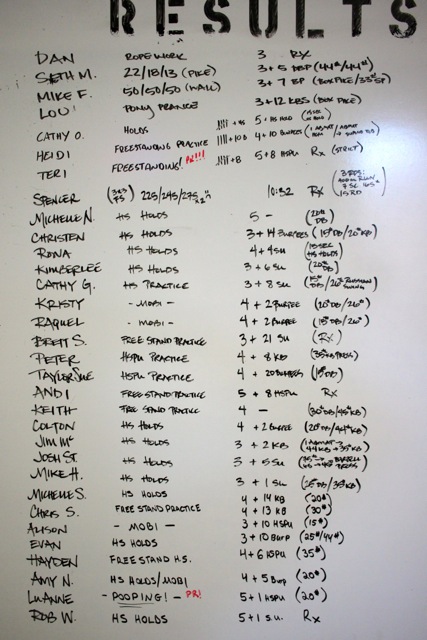 RESULTS
DAN ROPEWORK 3 RX
SETH M. 22/18/13 (PIKE) 3+5 (44#/44#)
MIKE F. 50/50/50 (WALL) 3+7 (BOX PIKE/33#)
LOU PONY PRANCE 3+12 KBS (BOX PIKE)
CATHY O. HOLDS 5+ HOLD
HEIDI FREESTANDING PRACTICE 4+10 BURPEES
TERI FREESTANDING! PR!!! +8 5+8 HSPU RX (STRICT)
SPENCER 225/245/275 10:32 RX
MICHELLE N. HS HOLDS 5 - (20# DB)
CHRISTEN HS HOLDS 3+14 BURPEES (15# DB/20# KB)
RONA HS HOLDS 4+4 SU (HS HOLDS)
KIMBERLEE HS HOLDS 3+6 SU (20# DB)
CATHY G. HS PRACTICE 3+8 SU (15# DB/26# RUSSIAN SWING)
KRISTY - MOBI - 4+2 BURPEE (20# DB/26#)
RAQUEL - MOBI - 4+2 BURPEE (15# DB/26#)
BRETT S. FREE STAND PRACTICE 3+21 SU (RX)
PETER HSPU PRACTICE 4+8 KB (35# PRESS)
TAYLOR SUE HSPU PRACTICE 4+20 BURPEES (15# DB)
ANDI FREE STAND PRACTICE 5+8 HSPU RX
KEITH FREE STAND PRACTICE 4 - (30# DB/45# KB)
COLTON HS HOLDS 4+2 BURPEE (20# DB/44# KB)
JIM MC HS HOLDS 3+2 KB (1 ABMAT 44 KB → 35 KB)
JOSH ST. HS HOLDS 3+5 SU
MIKE H. HS HOLDS 3+1 SU (25# DB/35# KB)
MICHELLE S. HS HOLDS 4+14 KB (20#)
CHRIS S. FREE STAND PRACTICE 4+13 KB (30#)
ALISON - MOBI - 3+10 HSPU (15#)
EVAN HS HOLDS 3+10 BURP (25#/44#)
HAYDEN FREE STAND H.S. 4+6 HSPU (35#)
AMY N. HS HOLDS/MOBI 4+5 BURP (20#)
LUANNE - POOPING! - PR! 5+1 HSPU (20#)
ROB W. HS HOLDS 5+1 S.U. RX